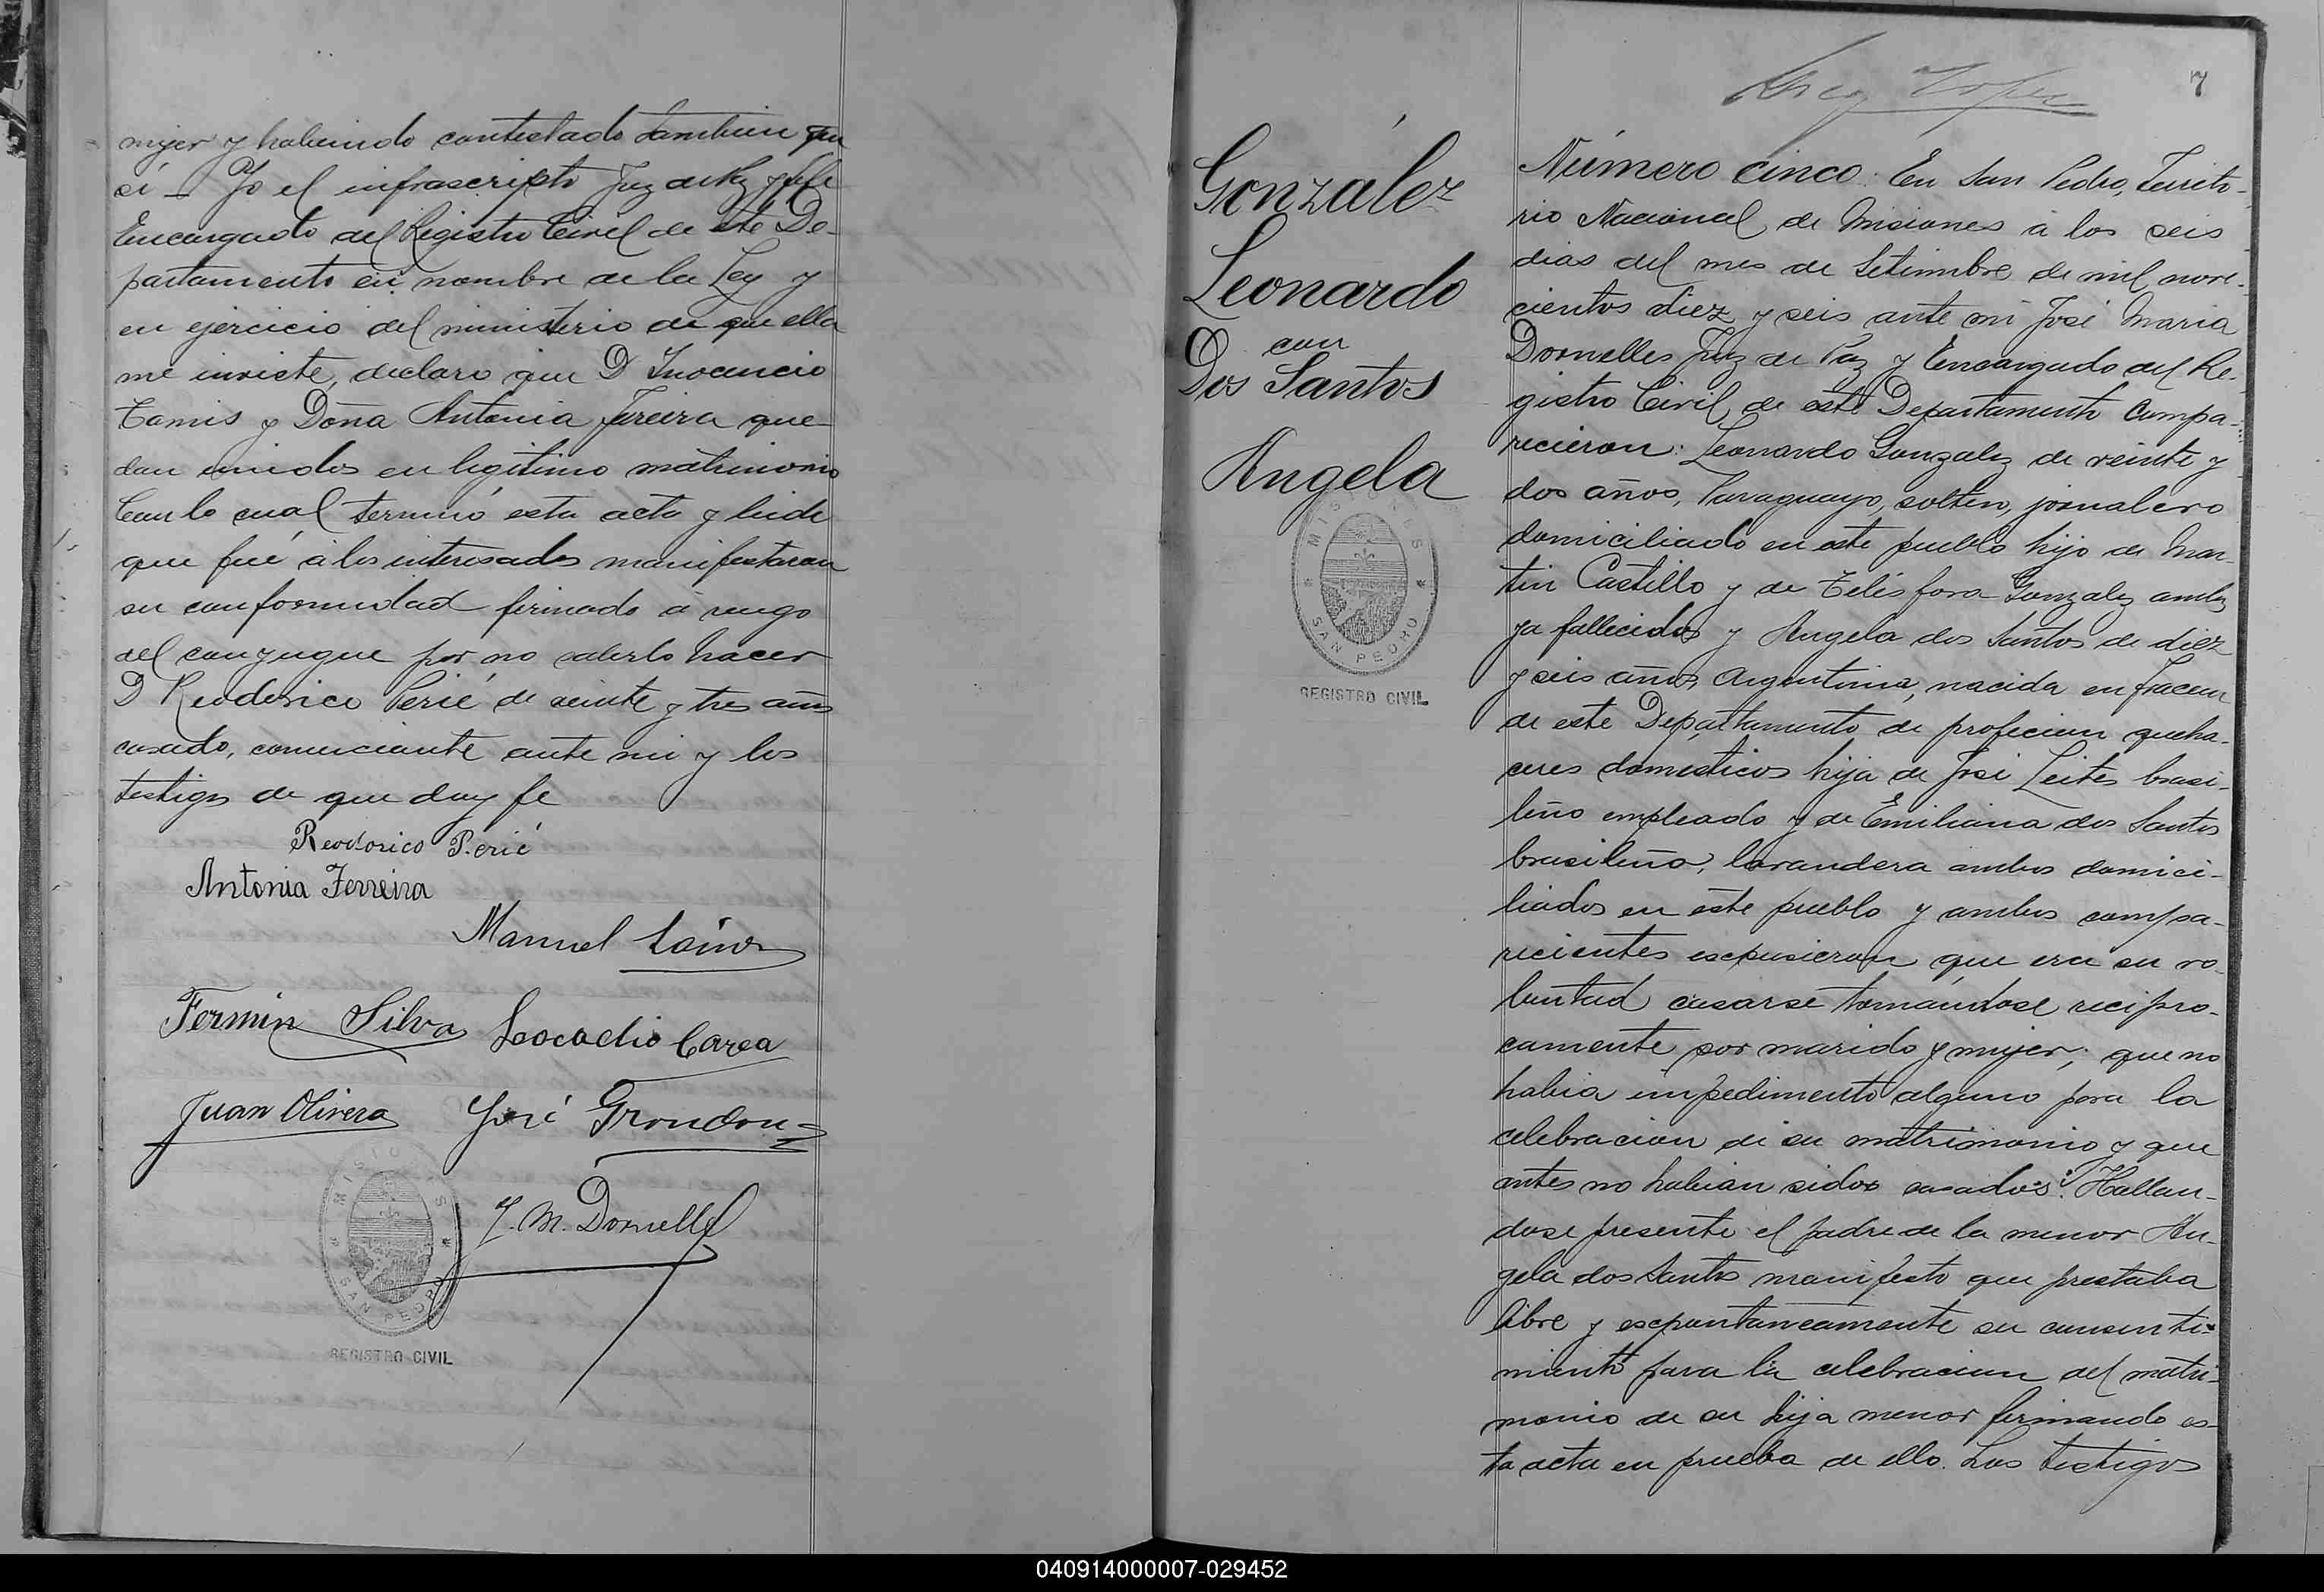 mujer y habiendo contestado tambien que
si — Yo el infrascripto Juez de Paz y Jefe
Encargado del Registro Civil de este De-
partamento en nombre de la Ley y
en ejercicio del ministerio de que ella
me inviste, declaro que D Inocencio
Tamis y Doña Antonia Fereira que-
dan unidos en legítimo matrimonio
Con lo cual terminó esta acta y leida
que fué á los interesados manifestaron
su conformidad firmado á ruego
del conyugue por no saberlo hacer
D Reodorico Perié de veinte y tres años
casado, comerciante ante mi y los
testigos de que doy fe
Reodorico Perié
Antonia Ferreira
Manuel
Fermin Silva Leocadio Carea
Juan Olivera José Grondon
MISIONES
SAN PEDRO
J. M. Dornelles
REGISTRO CIVIL
7
González
Leonardo
con
Dos Santos
Angela
MISIONES
SAN PEDRO
REGISTRO CIVIL
Número cinco. En San Pedro, Territo-
rio Nacional de Misiones á los seis
dias del mes de Setiembre de mil nove-
cientos diez y seis ante mi José Maria
Dornelles Juez de Paz y Encargado del Re-
gistro Civil de este Departamento Compa-
recieron: Leonardo Gonzalez de veinte y
dos años, Paraguayo, soltero, jornalero
domiciliado en este pueblo hijo de Mar-
tin Castillo y de Telésfora Gonzalez ambos
ya fallecidos y Angela dos Santos de diez
y seis años, Argentina, nacida en Fracan
de este Departamento de profecion queha-
ceres domesticos hija de José Leites brasi-
leño empleado y de Emiliana dos Santos
brasileña, lavandera ambos domici-
liados en este pueblo y ambos compa-
recientes escpusieron que era su vo-
luntad casarse tomándose recipro-
camente por marido y mujer; que no
habia impedimento alguno para la
celebracion de su matrimonio y que
antes no habian sidos casados. Hallan-
dose presente el padre de la menor An-
gela dos Santos manifestó que prestaba
libre y escpontaneamente su consenti-
miento para la celebracion del matri-
monio de su hija menor firmando es-
ta acta en prueba de ello. Los testigos
040914000007-029452